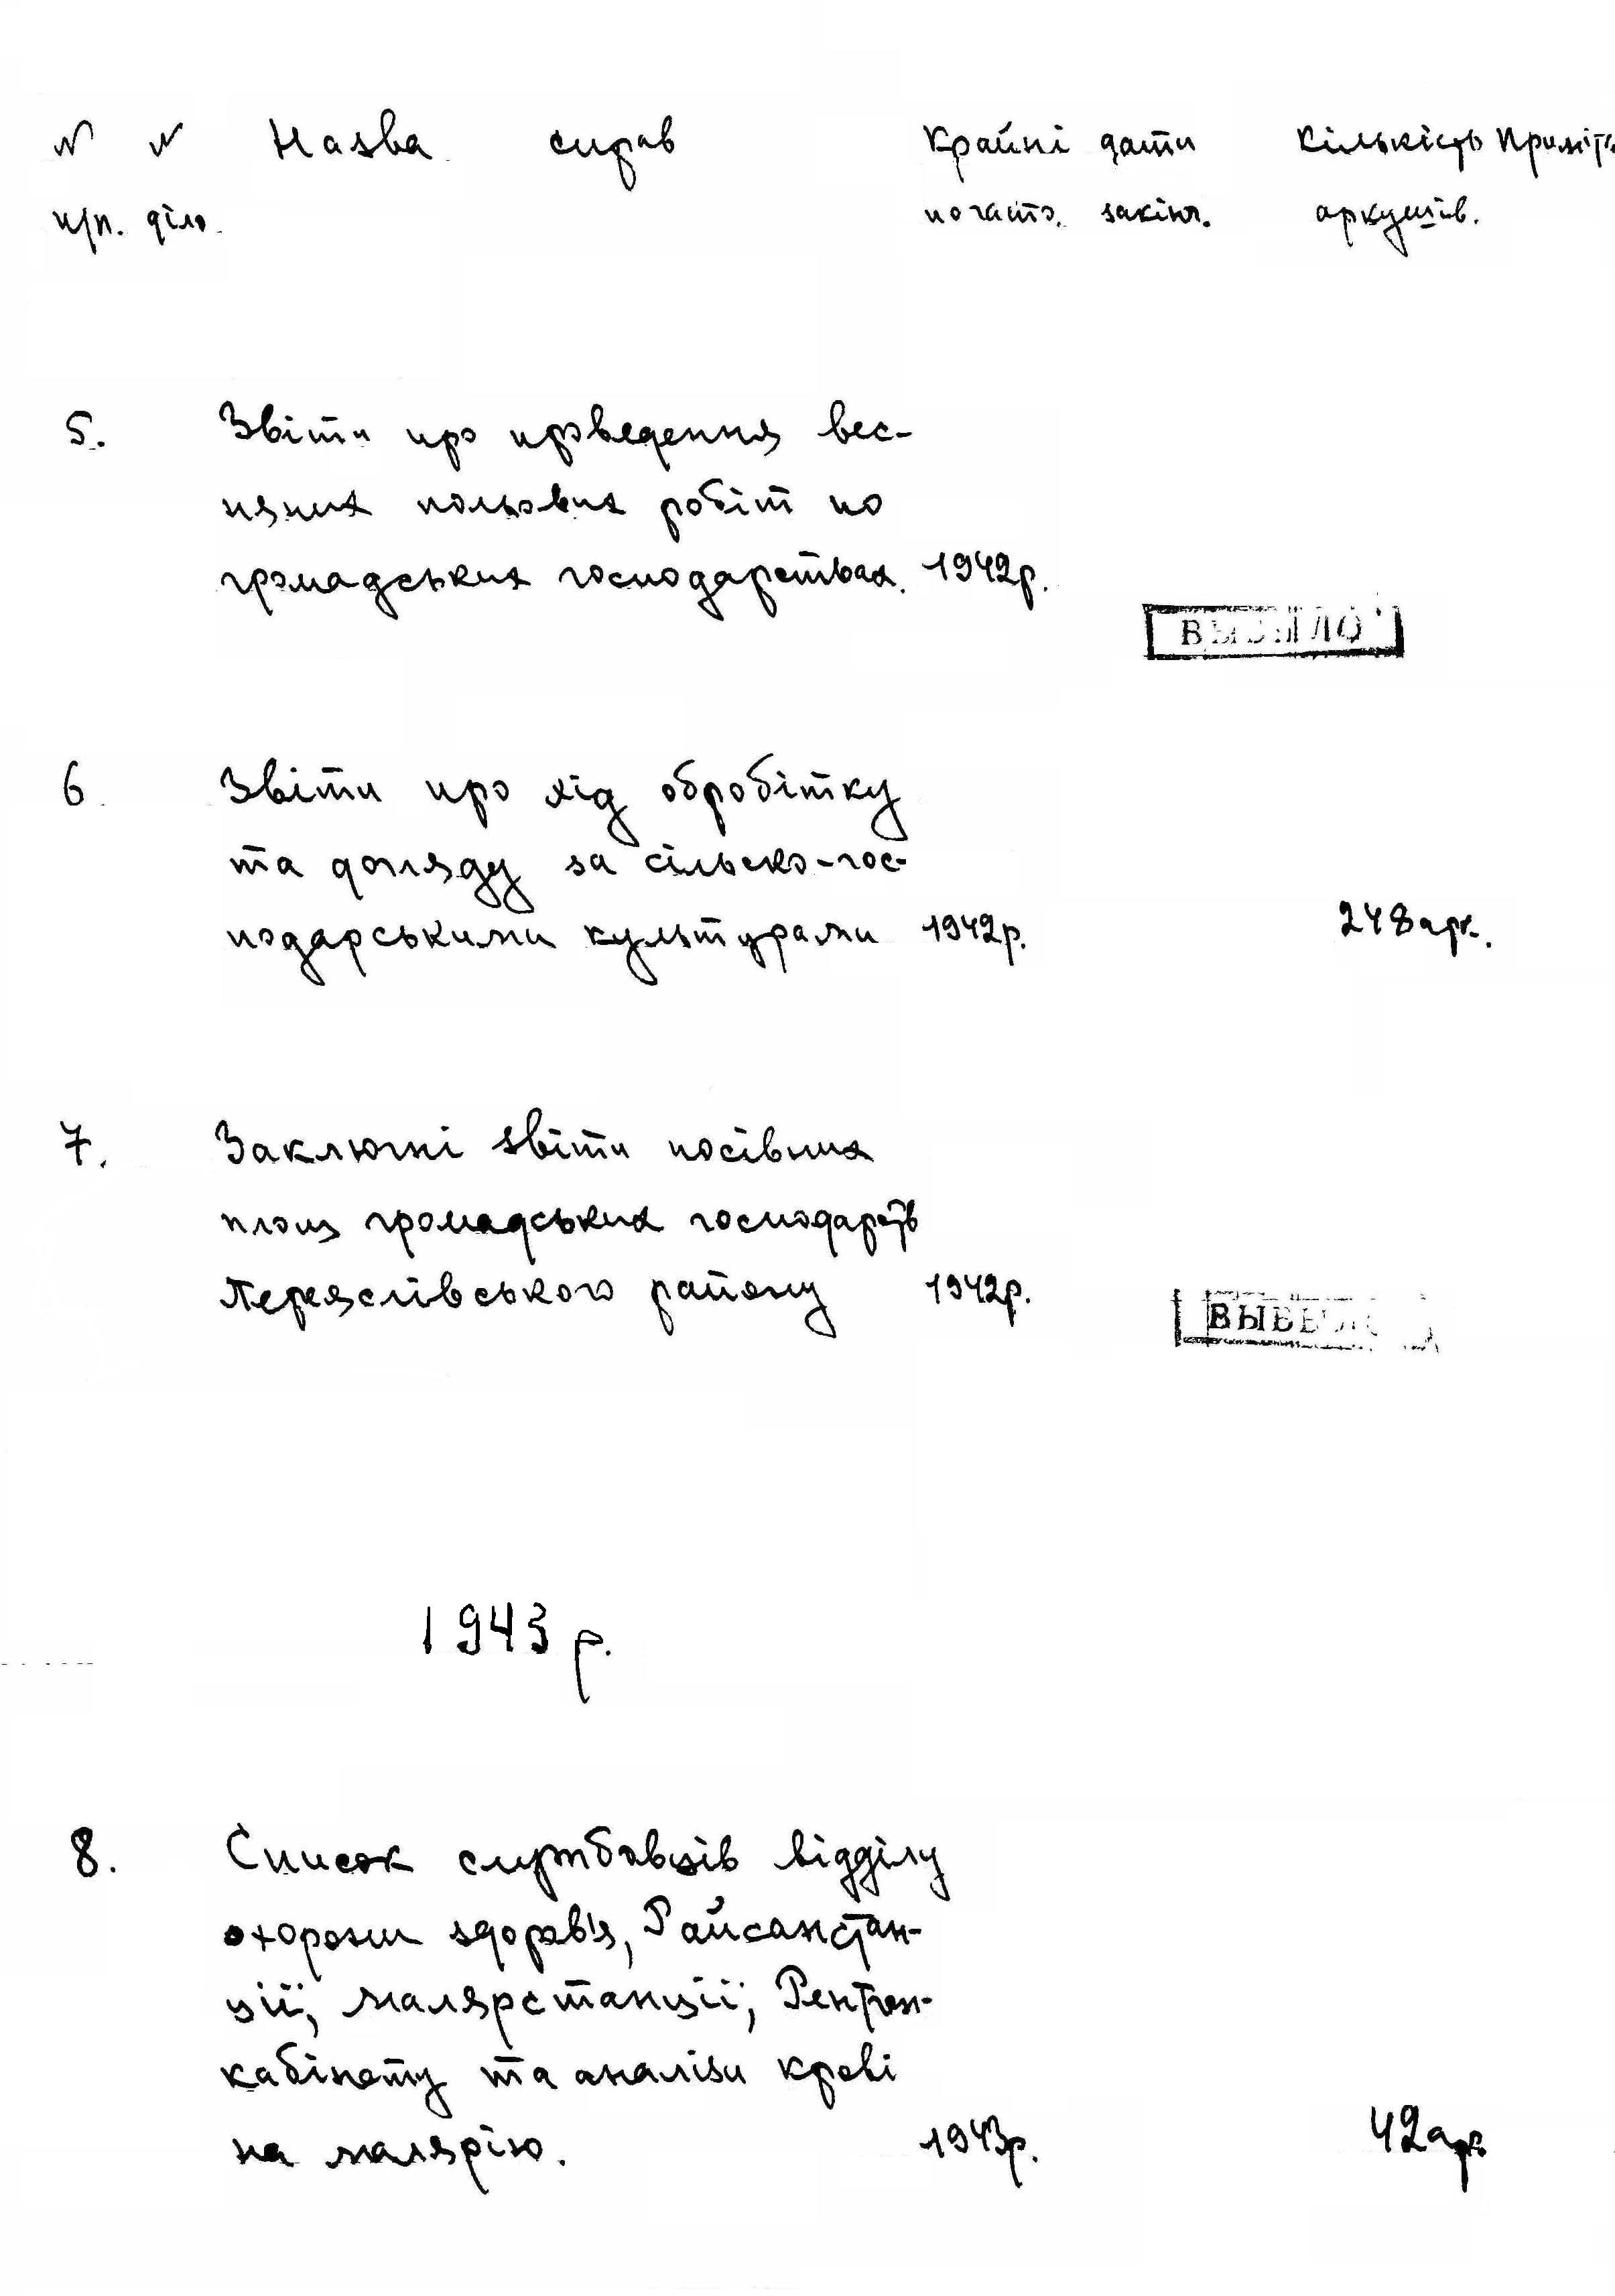 № № Назва справ Крайні дати Кількість Приміт.
п/п. діло. початэ. закінч. аркушів.
5. Звіти про проведення вес-
няних польових робіт по
громадських господарствах. 1942р.
ВЫБЫЛО
6. Звіти про хід обробітку
та догляду за сілько-гос-
подарськими культурами 1942р. 248арк.
7. Заключні звіти посівних
площ громадських господарств
Переяслівського району 1942р.
ВЫБЫЛО
1943 р.
8. Список службовців відділу
охорони здоров'я, Райсанстан-
ції, малярстанції, Рентген-
кабінету та аналізи крові
на малярію. 1943р. 42арк